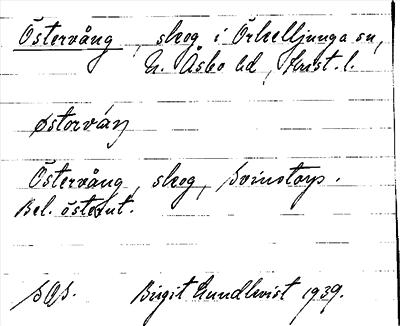 Östervång, skog i Örkelljunga sn,
N. Åsbo hd, Krist. l.
østorváŋ
Östervång, skog, Svinstorp.
Bel. österut.
SOS. Birgit Lundkvist 1939.